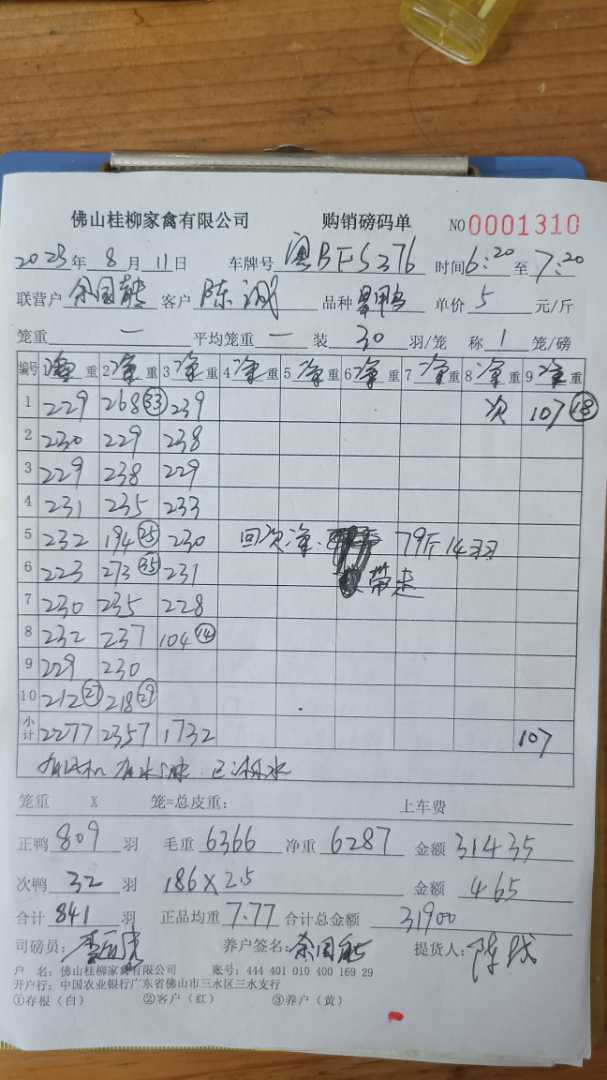 佛山桂柳家禽有限公司 购销磅码单 NO0001310
2023年 8月 11日 车牌号 粤BF5376 时间6:20至7:20
联营户 余国能 客户 陈诚 品种 单价 5 元/斤
笼重 一 平均笼重 一 装 30 羽/笼 称 1 笼/磅
编号 净重 2净重 3净重 4净重 5净重 6净重 7净重 8净重 9净重
1 229 268㉝ 239 次 107⑱
2 230 229 238
3 229 238 229
4 231 235 233
5 232 194㉕ 230 回次净. 79斤14羽
6 223 273㉟ 231 带走
7 230 235 228
8 232 237 104⑭
9 229 230
10 212㉗ 218㉙
小计 2277 2357 1732 107
有风机 有水 已淋水
笼重 X 笼=总皮重: 上车费
正鸭 809 羽 毛重 6366 净重 6287 金额 31435
次鸭 32 羽 186×2.5 金额 465
合计 841 羽 正品均重 7.77 合计总金额 31900
司磅员: 养户签名:余国能 提货人:陈
户 名:佛山桂柳家禽有限公司 账号:444 401 010 400 169 29
开户行:中国农业银行广东省佛山市三水区三水支行
①存根(白) ②客户(红) ③养户(黄)